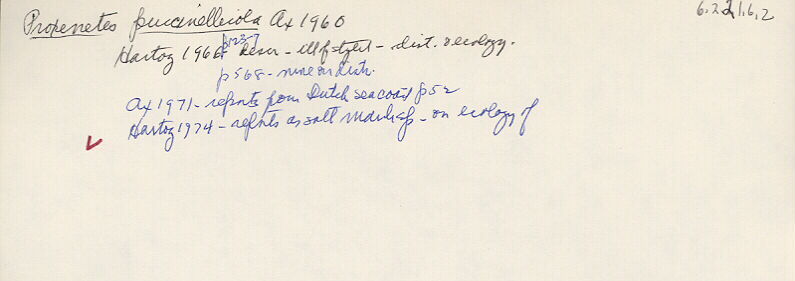 6.2.21.6.2
Propenetes puccinelliola Ax 1960
Hartog 1966 p123-7 descr - ill fig text - dist. ecology.
p568 - more on distr.
Ax 1971 - reports from Dutch seacoast p52
Hartog 1974 - reports as salt marsh sp - on ecology of